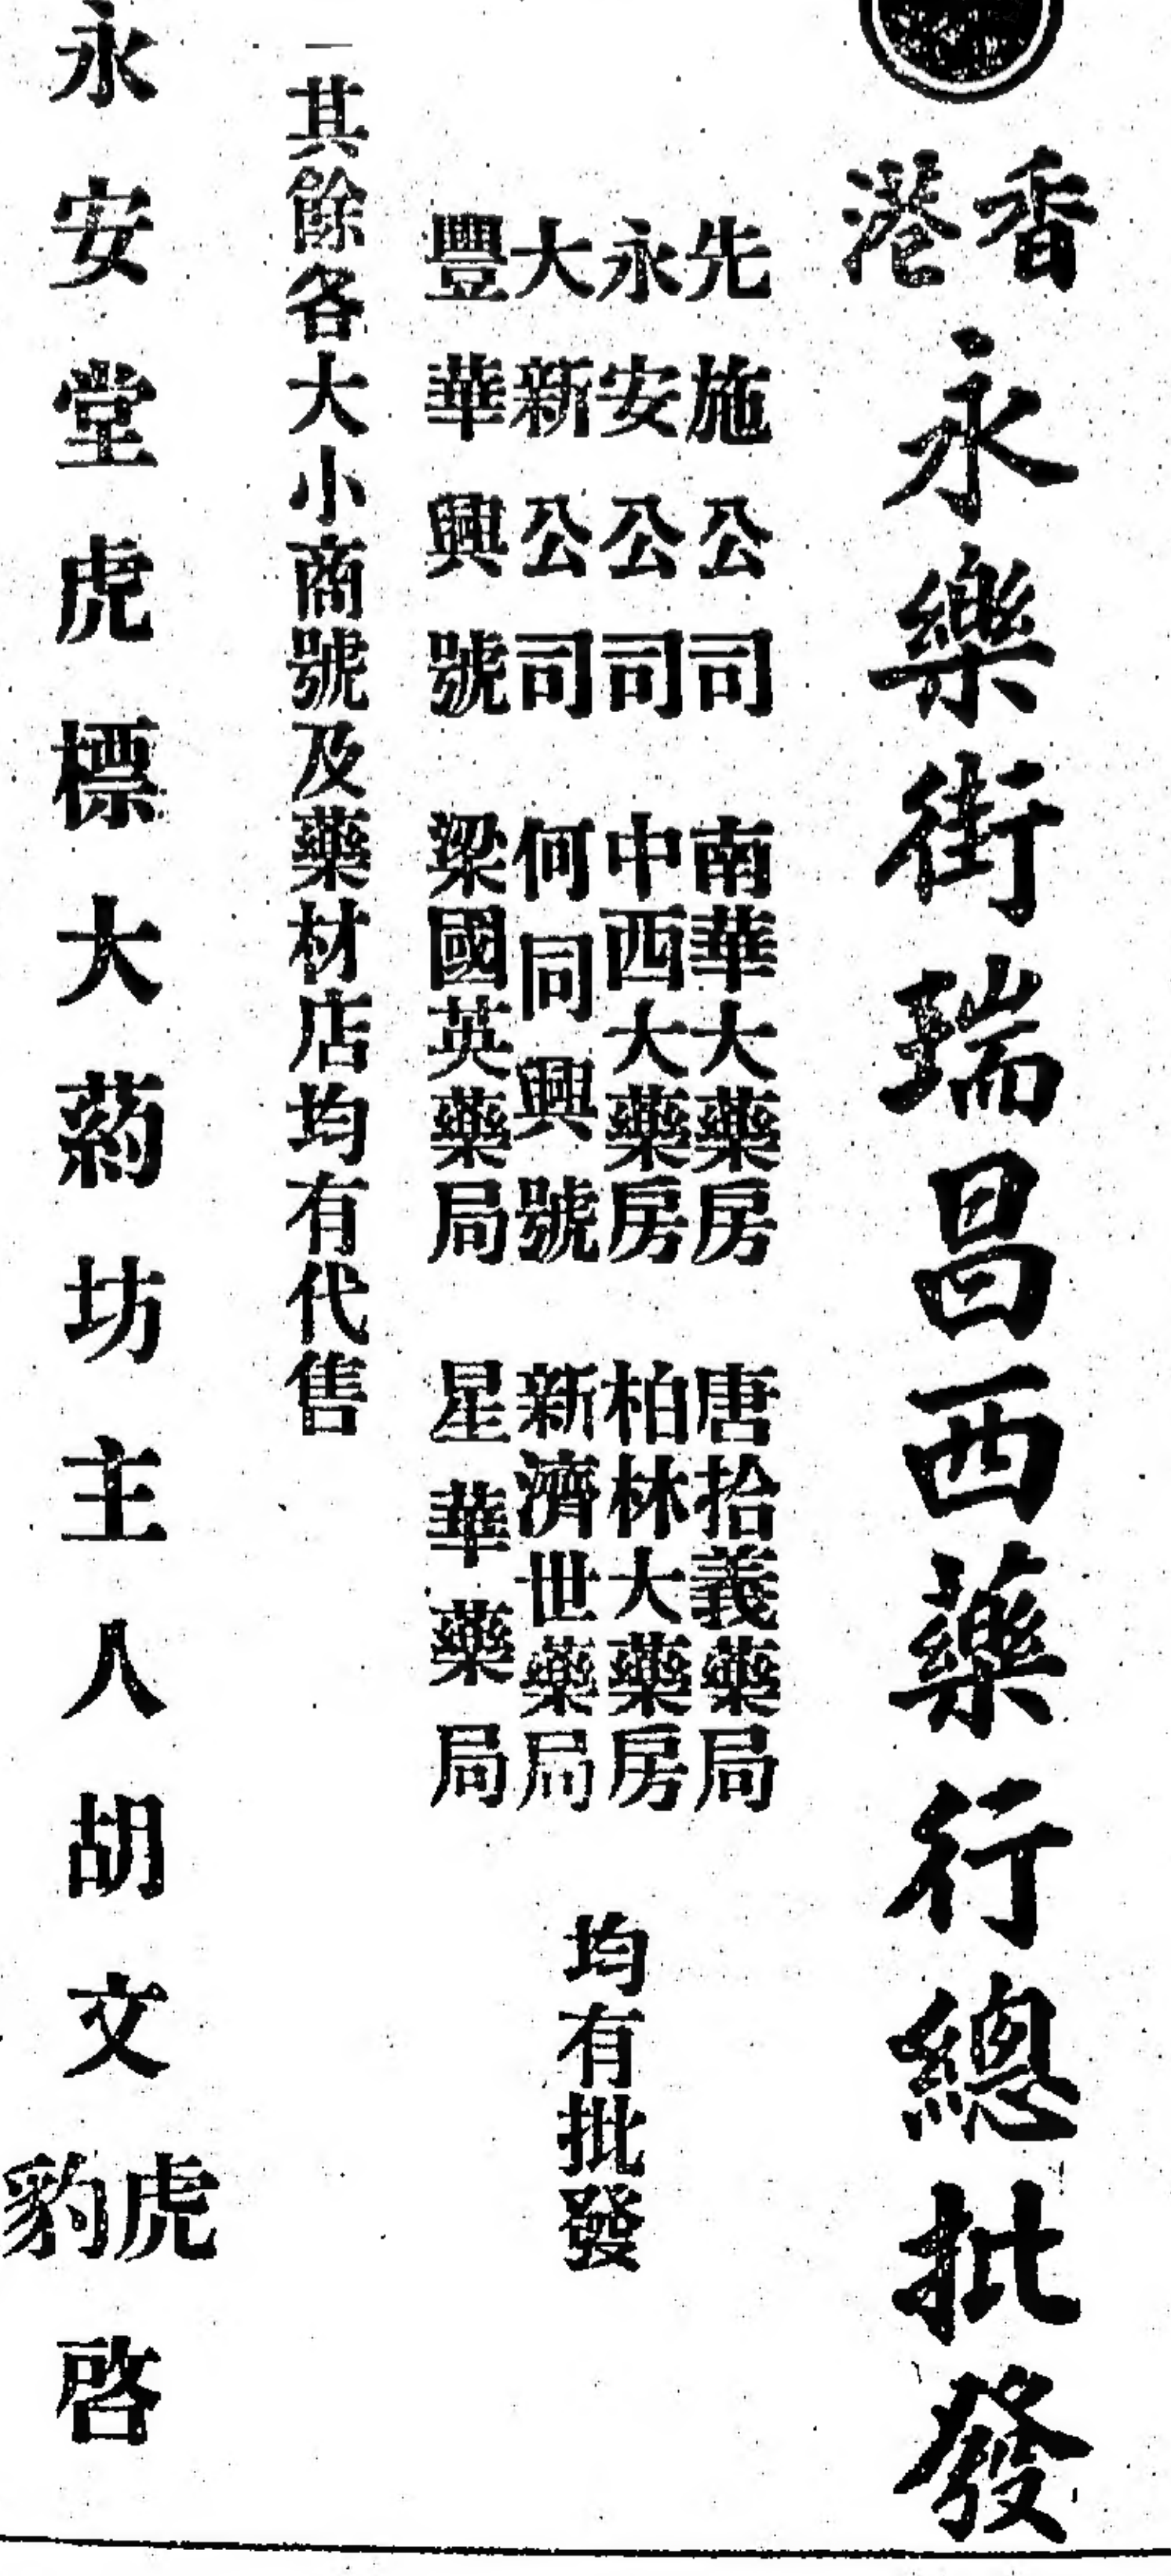 香港永樂街瑞昌西藥行總批發
先施公司　南華大藥房　唐拾義藥局
永安公司　中西大藥房　柏林大藥房
大新公司　何同興號　新濟世藥局
豐華興號　梁國英藥局　星華藥局
均有批發
其餘各大小商號及藥材店均有代售
永安堂虎標大葯坊主人胡文虎豹啓